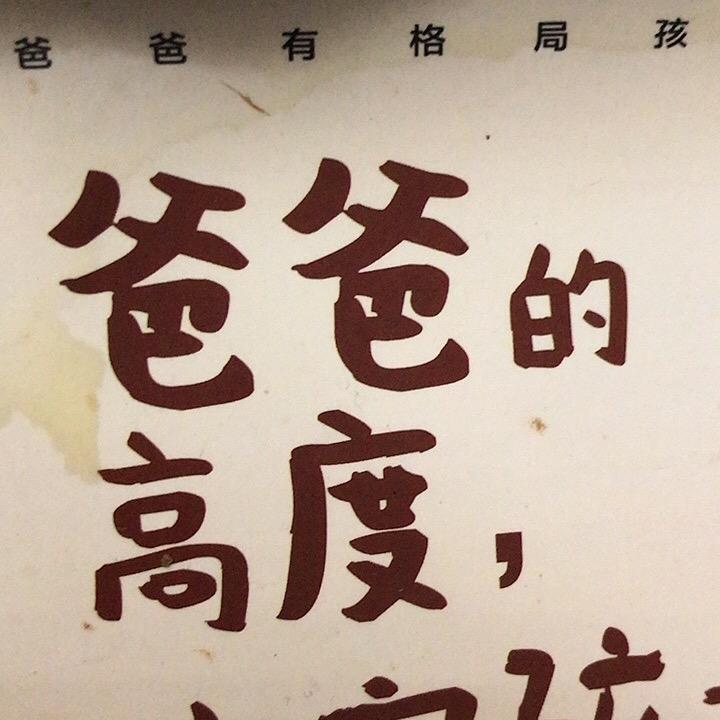 爸爸有格局孩
爸爸的
高度，